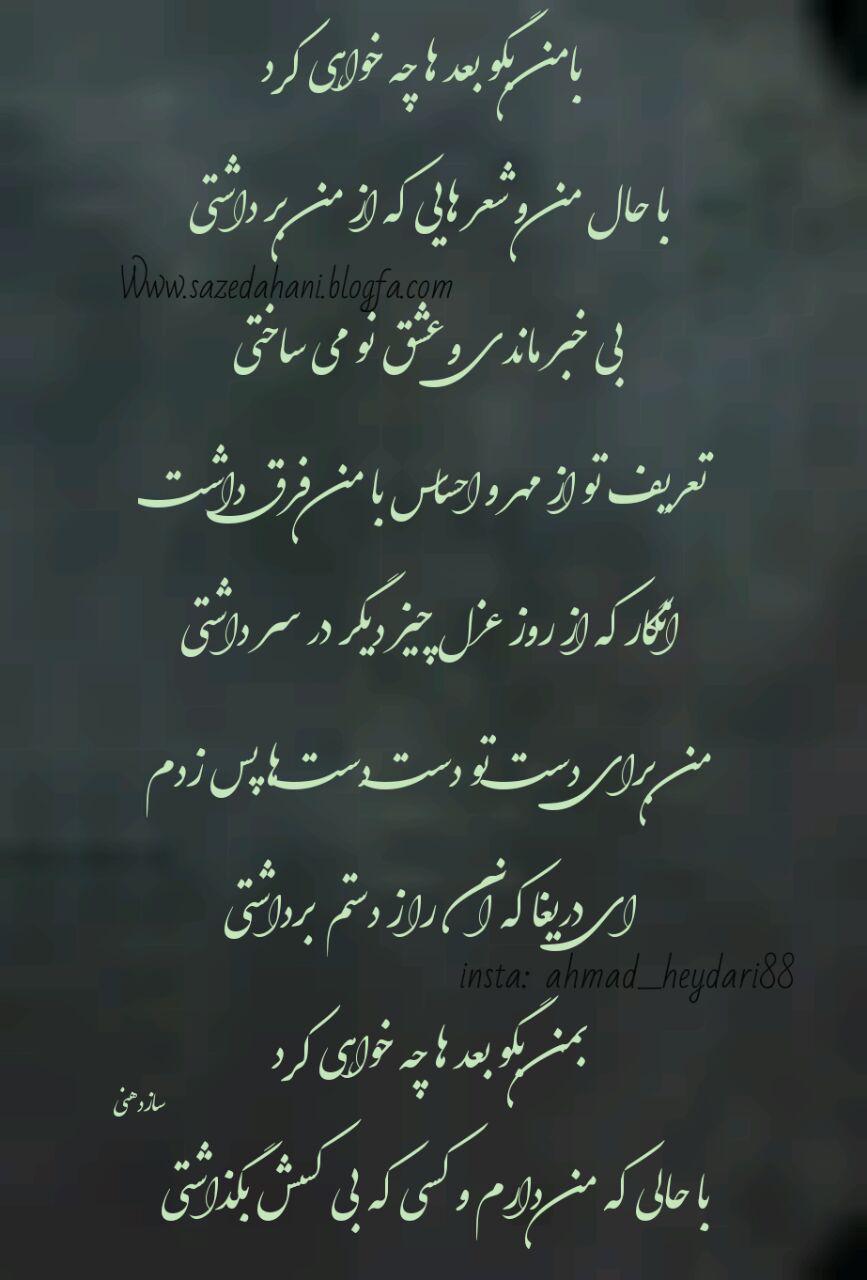 بامن بگو بعد ها چه خواهی کرد
با حال من و شعر هایی که از من بر داشتی
Www.sazedahani.blogfa.com
بی خبر ماندی و عشق نو می ساختی
تعریف تو از مهر و احساس با من فرق داشت
انگار که از روز عزل چیز دیگر در سر داشتی
من برای دست تو دست دست ها پس زدم
ای دریغا که انم راز دستم برداشتی
insta: ahmad_heydari88
بمن بگو بعد ها چه خواهی کرد
سازدهنی
با حالی که من دارم و کسی که بی کسش بگذاشتی